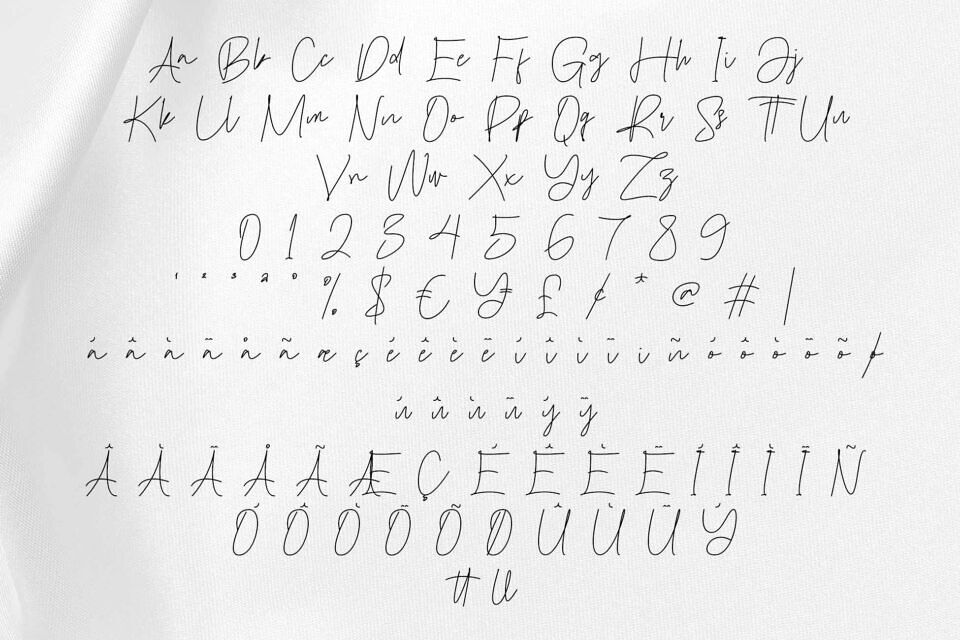 Aa Bb Cc Dd Ee Ff Gg Hh Ii Jj
Kk Ll Mm Nn Oo Pp Qq Rr Ss Tt Uu
Vv Ww Xx Yy Zz
0 1 2 3 4 5 6 7 8 9
¹ ² ³ ª º % $ € ¥ £ / * @ # |
á â à ä å ã æ ç é ê è ë í î ì ï i ñ ó ô ò ö õ ø
ú û ù ü ý ÿ
Â À Ä Å Ã Æ Ç É Ê È Ë Í Î Ì Ï Ñ
Ó Ô Ò Ö Õ Ø Û Ù Ü Ý
tt ll